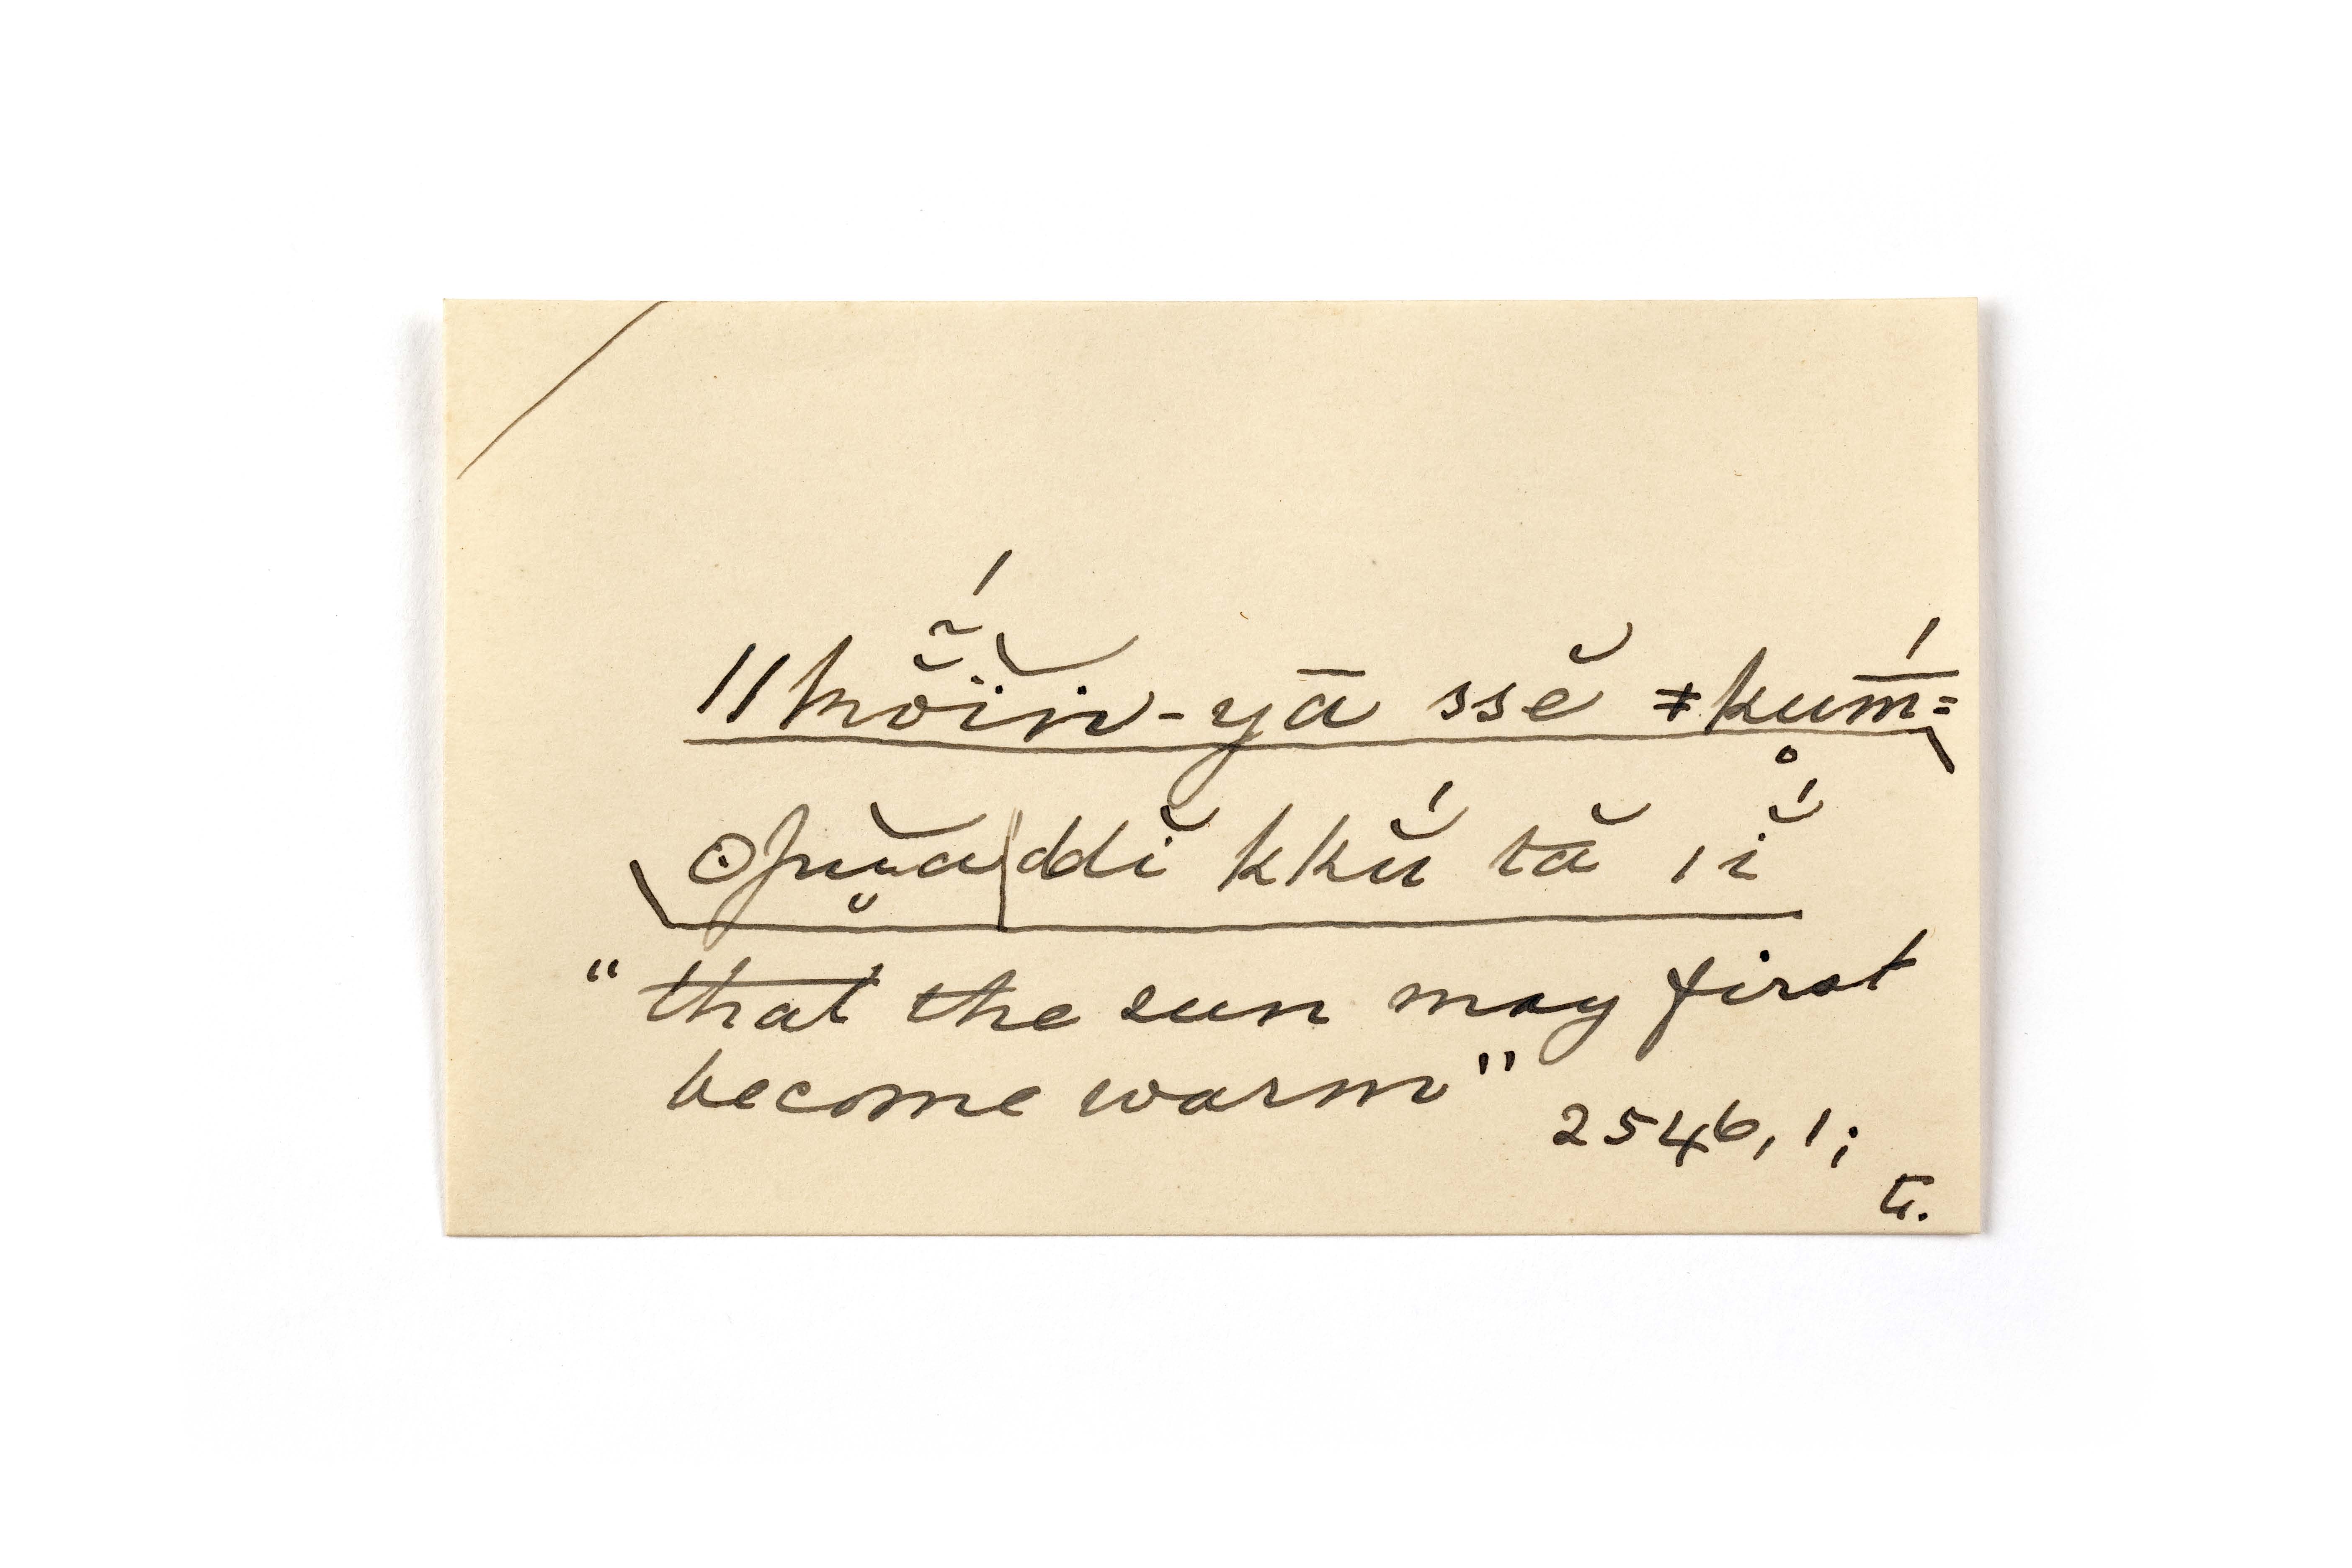 ǁhŏ̃ĭń-yā ssĕ ǂkúm̄=
ʘpŭ̯a|ddĭ kkŭ́ tă ıĭ̊́
"that the sun may first
become warm"
2546, 1;
G.